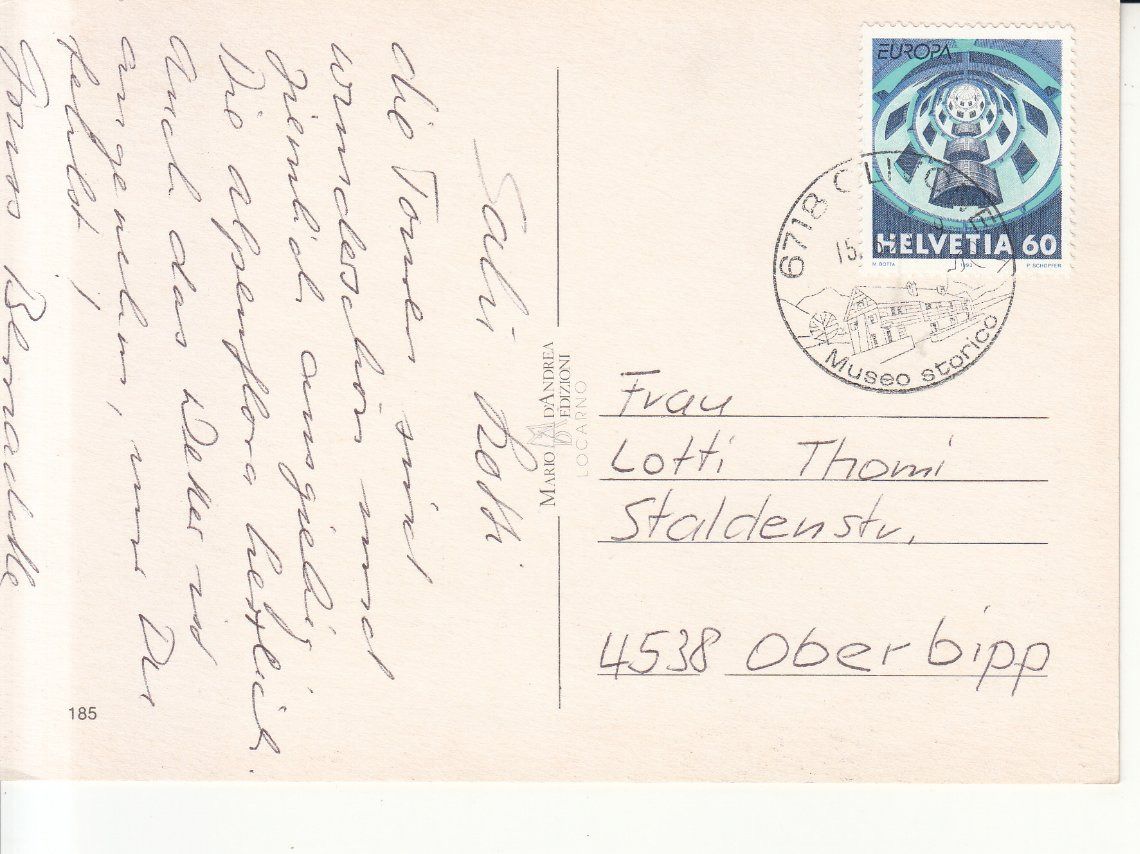 Sali Lotti
die Touren sind
wunderschön und
ziemlich ausgiebig
Die Alpenflora herrlich.
Auch das Wetter ist
angenehm, nur Du
fehlst!
Gruss Bernadette
185
MARIO D'ANDREA
EDIZIONI
LOCARNO
EUROPA
HELVETIA 60
M. BOTTA
P. SCHOPFER
6718 OLIVONE
15.
Museo storico
Frau
Lotti Thomi
Staldenstr.
4538 Oberbipp